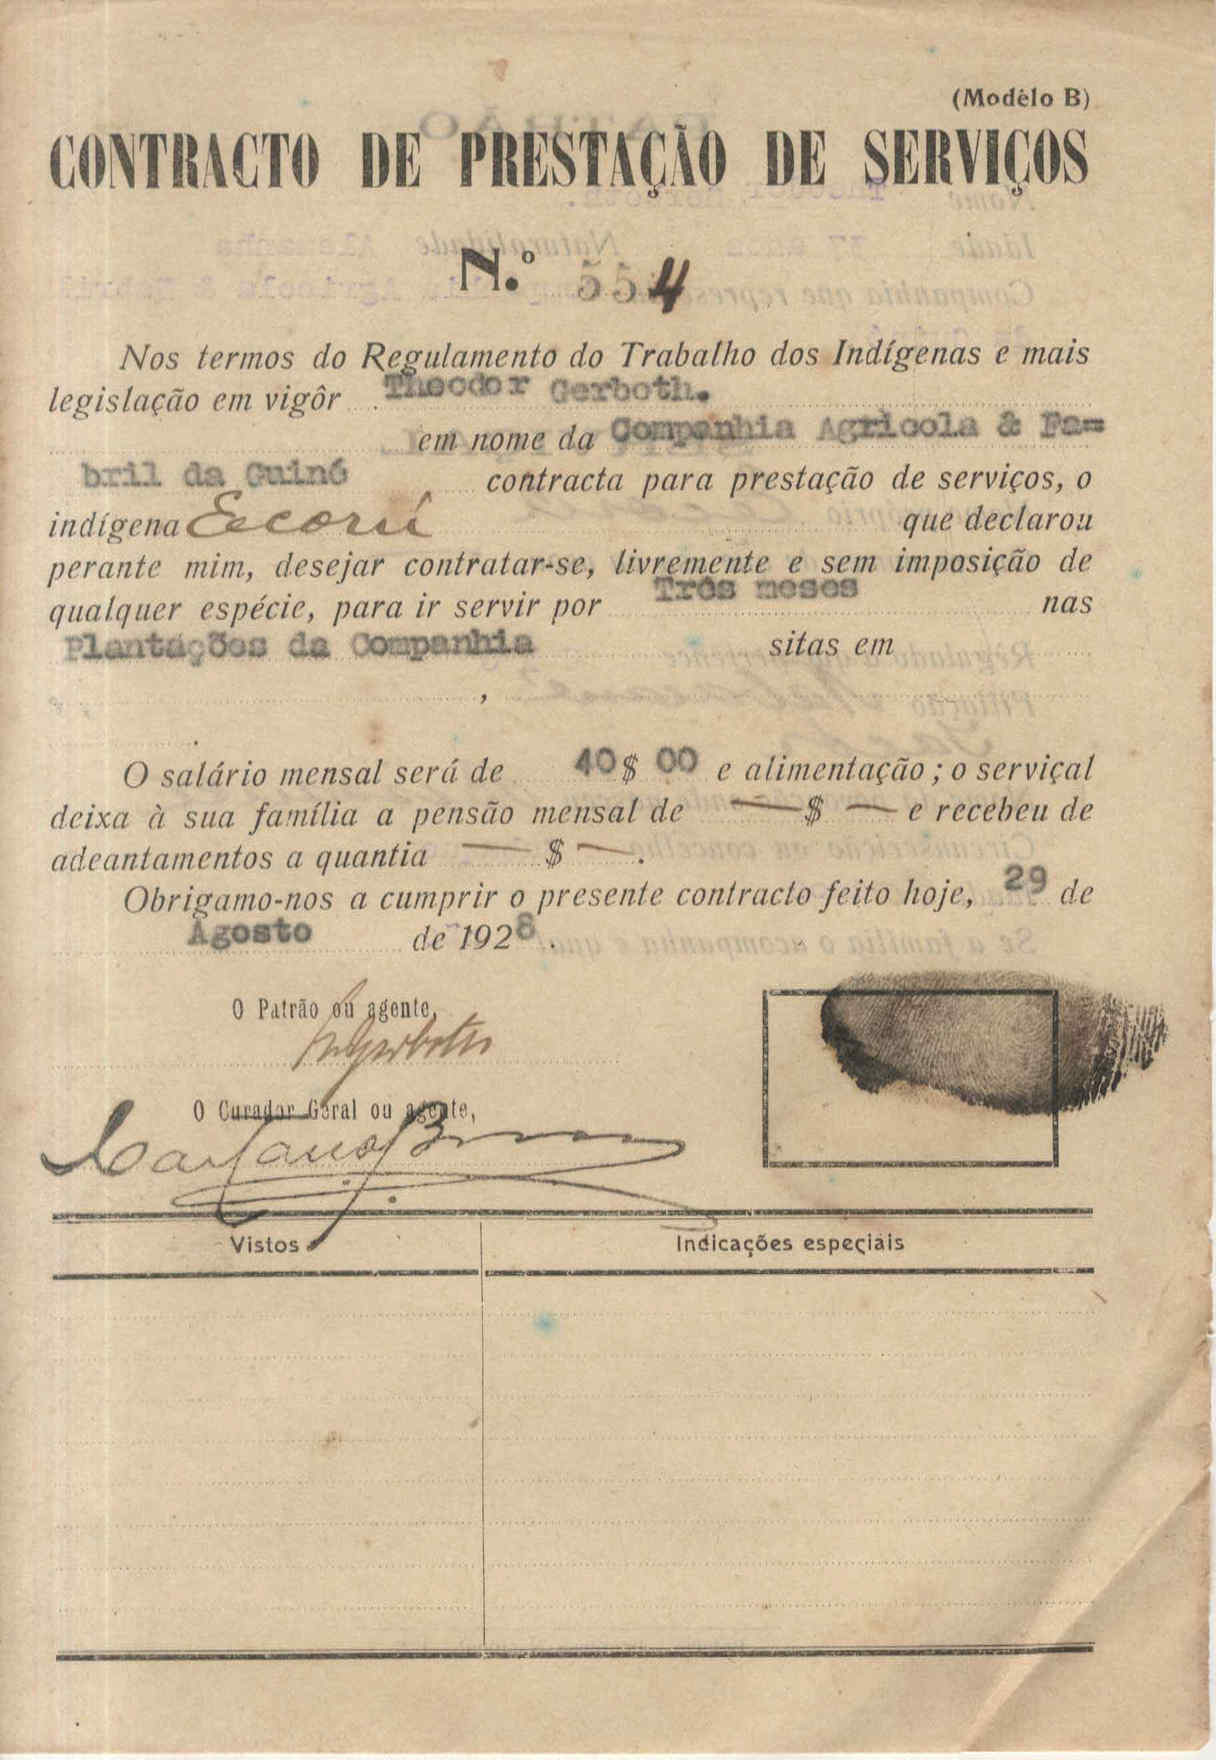 (Modêlo B)
CONTRACTO DE PRESTAÇÃO DE SERVIÇOS
N.º 554
Nos termos do Regulamento do Trabalho dos Indígenas e mais
legislação em vigôr Theodor Gerboth.
em nome da Companhia Agricola & Fa=
bril da Guiné contracta para prestação de serviços, o
indígena Ecorú que declarou
perante mim, desejar contratar-se, livremente e sem imposição de
qualquer espécie, para ir servir por Três meses nas
Plantações da Companhia sitas em
,
O salário mensal será de 40$00 e alimentação; o serviçal
deixa à sua família a pensão mensal de —$— e recebeu de
adeantamentos a quantia —$—.
Obrigamo-nos a cumprir o presente contracto feito hoje, 29 de
Agosto de 1928.
O Patrão ou agente,
Gerboth
O Curador Geral ou agente,
Vistos
Indicações especiais